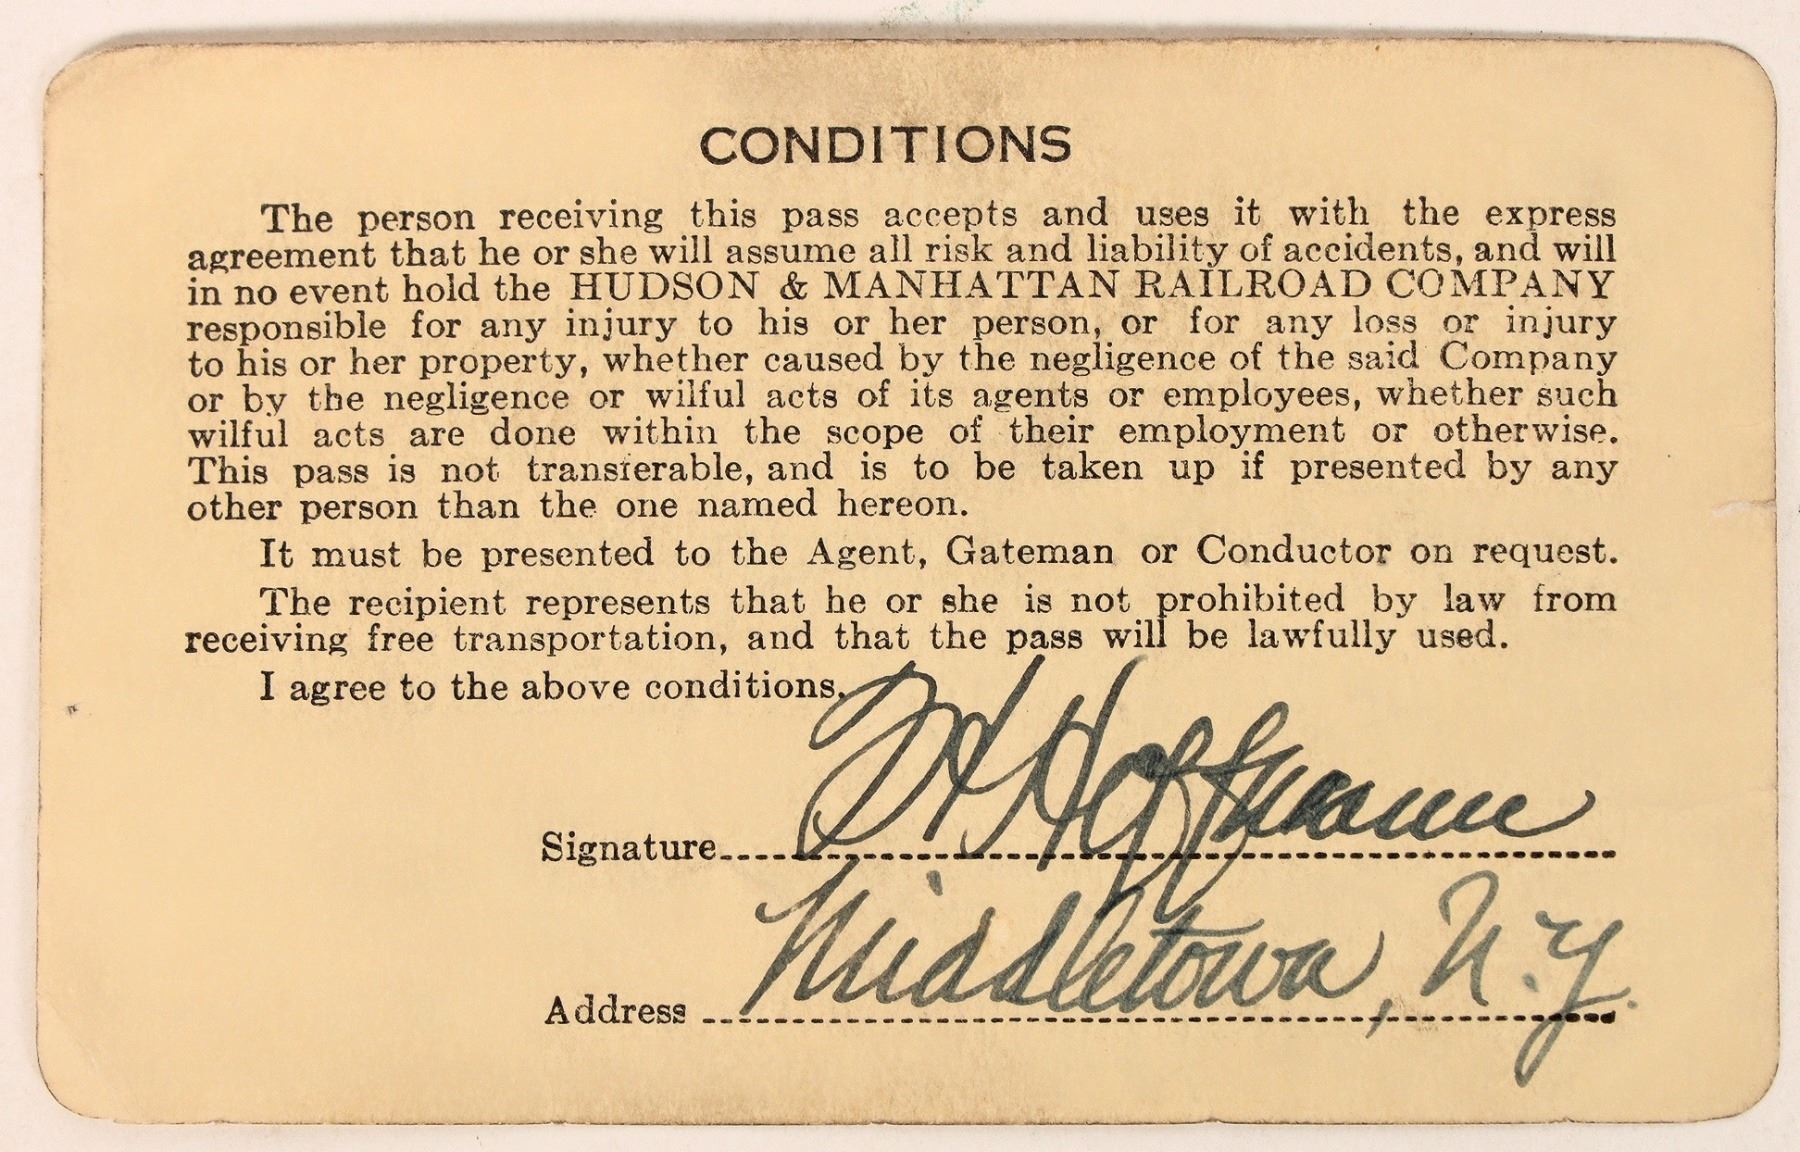 CONDITIONS
The person receiving this pass accepts and uses it with the express
agreement that he or she will assume all risk and liability of accidents, and will
in no event hold the HUDSON & MANHATTAN RAILROAD COMPANY
responsible for any injury to his or her person, or for any loss or injury
to his or her property, whether caused by the negligence of the said Company
or by the negligence or wilful acts of its agents or employees, whether such
wilful acts are done within the scope of their employment or otherwise.
This pass is not transferable, and is to be taken up if presented by any
other person than the one named hereon.
It must be presented to the Agent, Gateman or Conductor on request.
The recipient represents that he or she is not prohibited by law from
receiving free transportation, and that the pass will be lawfully used.
I agree to the above conditions.
Signature Hoffmann
Address Middletown, N.Y.